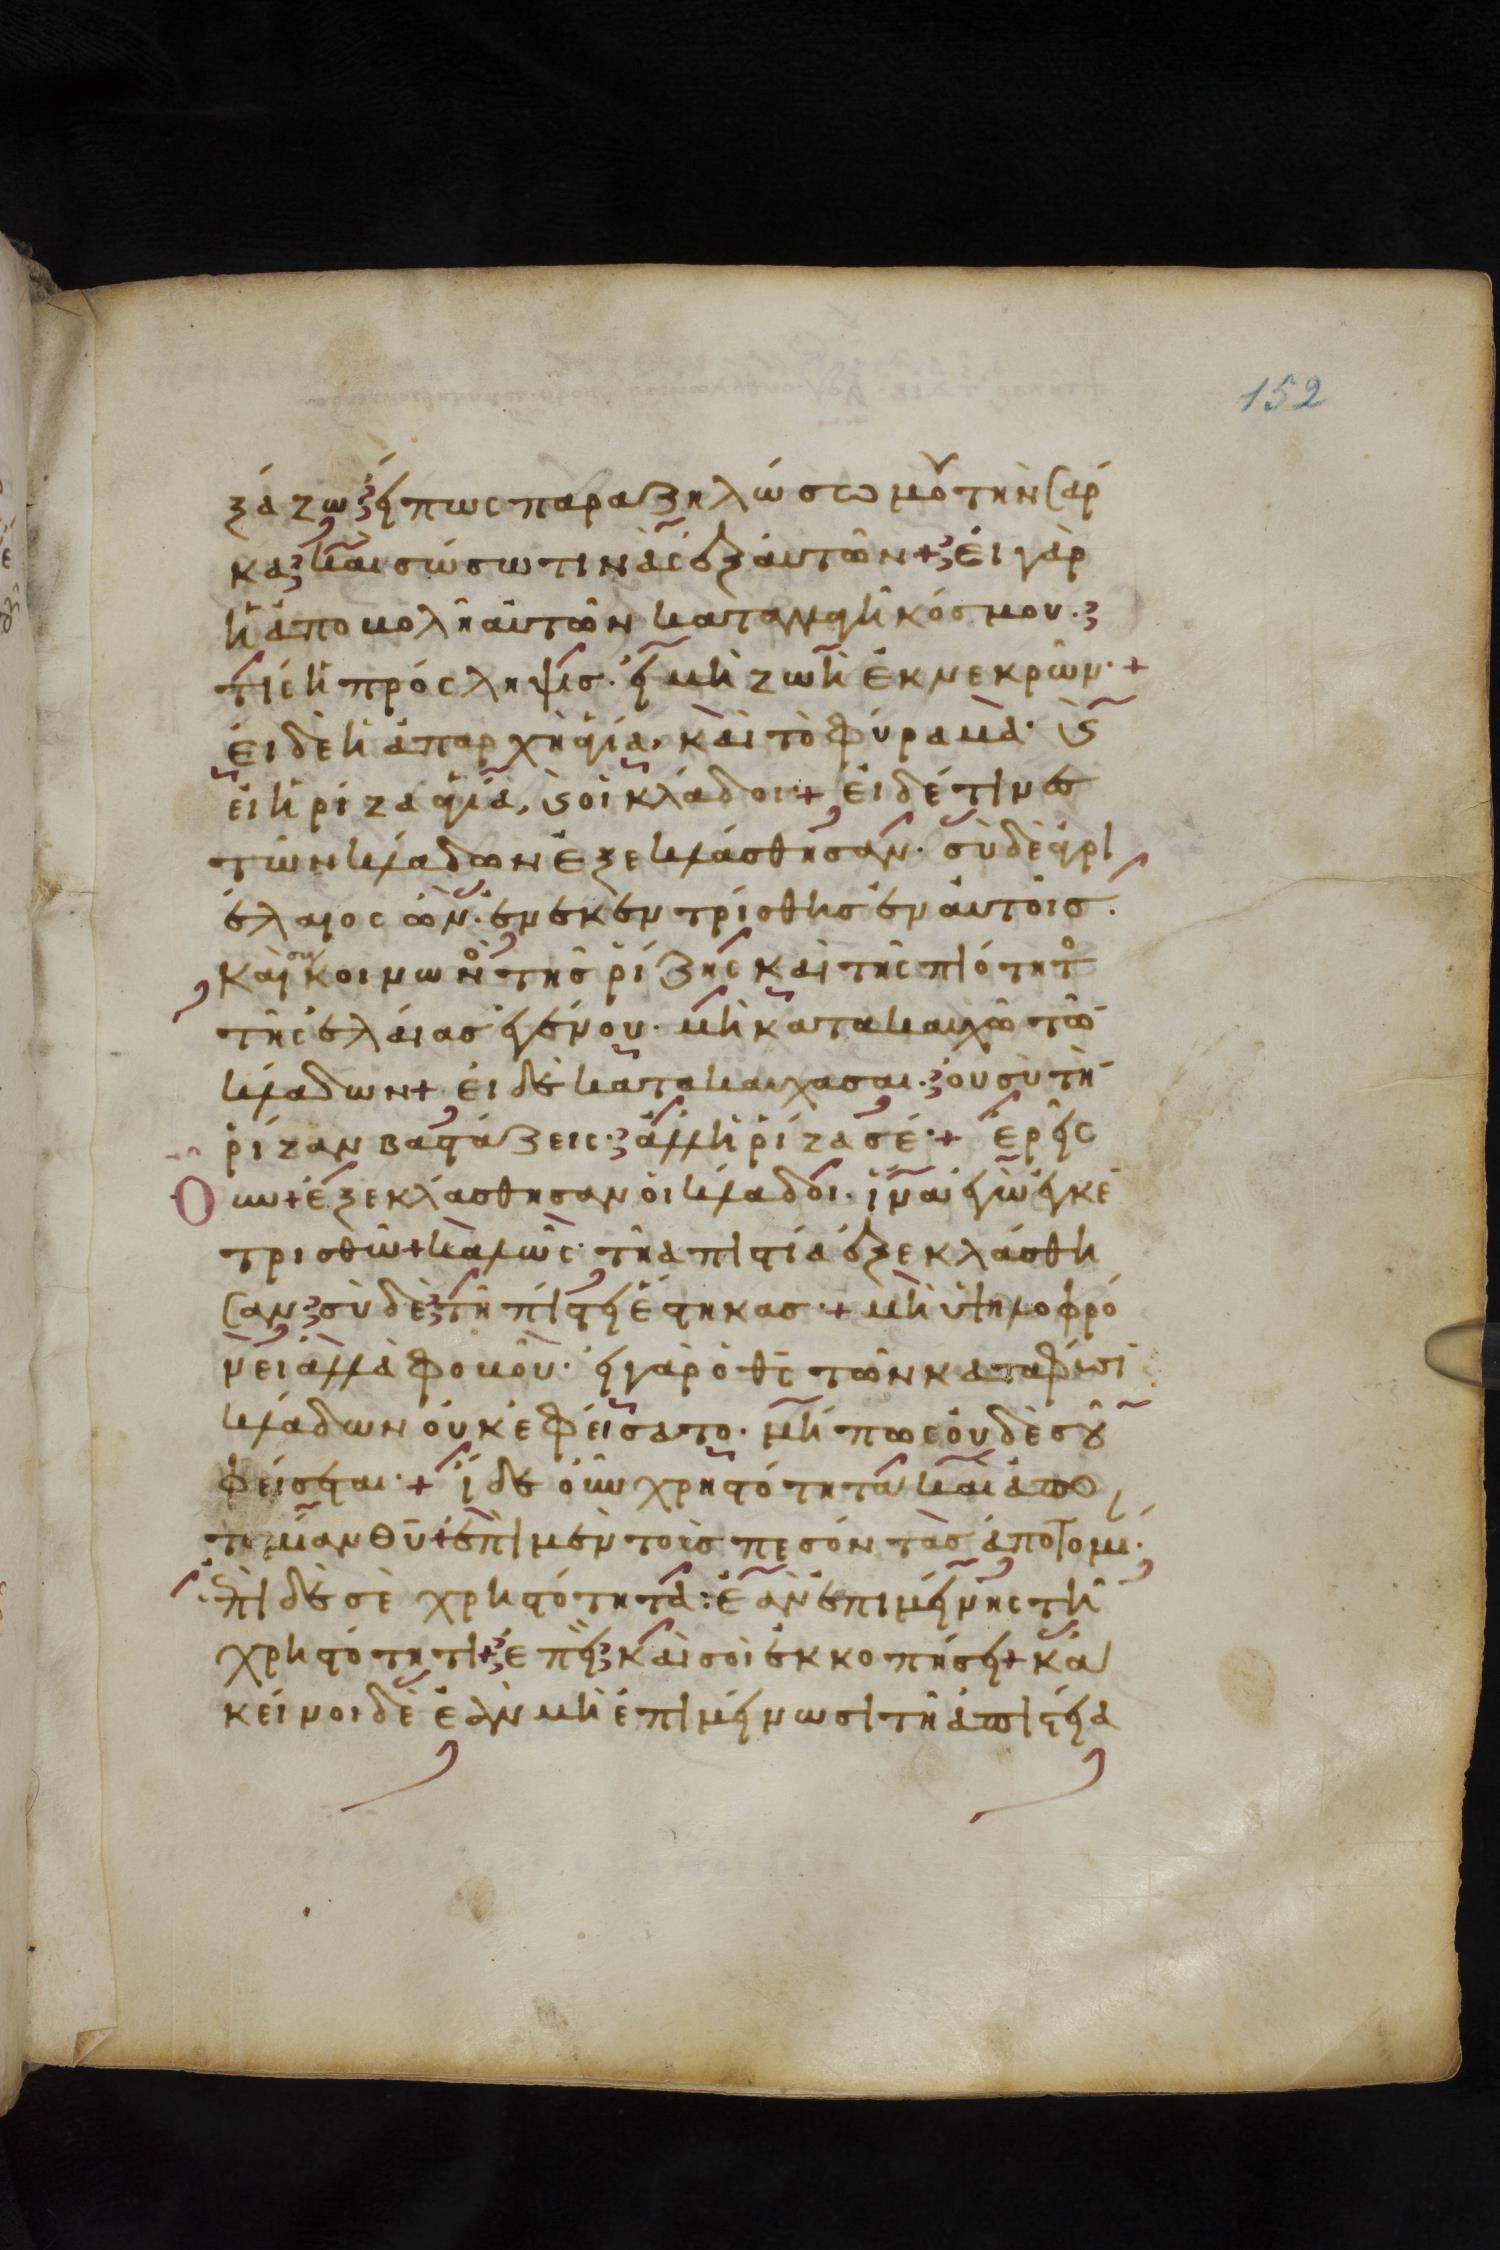 152
ξάζω εί πως παραζηλώσω μου την σάρ
κα και σώσω τινάς εξ αυτών + ει γαρ
η αποβολη αυτων καταλλαγη κόσμου·
τίς η πρόσληψις· ει μη ζωη εκ νεκρων· +
ει δε η απαρχη αγία, και το φύραμα· ϗ
ει η ριζα αγία, ϗ οι κλάδοι· + ει δέ τινες
των κλαδων εξεκλάσθησαν· συ δε αγρι
έλαιος ων· ενεκεντρίσθης εν αυτοις·
και συγκοινωνος της ρίζης και της πιότητος
της ελαίας εγένου· μη κατακαυχω των
κλαδων + ει δε κατακαυχασαι· ου συ την
ριζαν βαστάζεις· αλλ η ρίζα σέ· + ερεις
Ουν + εξεκλάσθησαν οι κλάδοι· ινα εγω εγκε
τρισθω + καλως· τη απιστία εξεκλάσθη
σαν συ δε τη πίστει έστηκας· + μη υψηλοφρό
νει αλλα φοβου· ει γαρ ο θς των κατα φύσι
κλάδων ουκ εφείσατο· μή πως ουδε σου
φείσεται· + ίδε ουν χρηστότητα και απο
τομίαν θυ + επι μεν τους πεσόντας αποτομία·
επι δε σε χρηστότητα: εαν επιμείνης τη
χρηστότητι + επει και συ εκκοπήση + κα
κείνοι δε εαν μη επιμείνωσι τη απιστεία